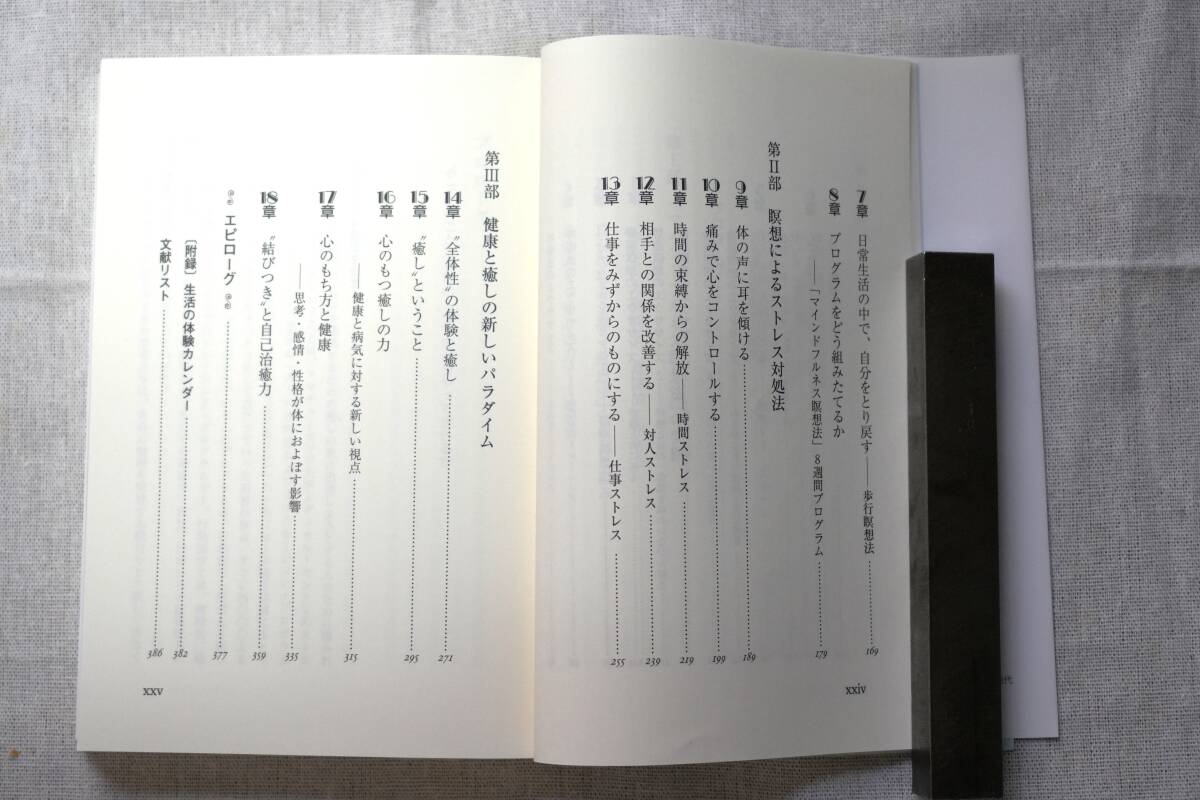 7章 日常生活の中で、自分をとり戻す——歩行瞑想法 169
8章 プログラムをどう組みたてるか
——「マインドフルネス瞑想法」8週間プログラム 179
第II部 瞑想によるストレス対処法
9章 体の声に耳を傾ける 189
10章 痛みで心をコントロールする 199
11章 時間の束縛からの解放——時間ストレス 219
12章 相手との関係を改善する——対人ストレス 239
13章 仕事をみずからのものにする——仕事ストレス 255
xxiv
第III部 健康と癒しの新しいパラダイム
14章 “全体性”の体験と癒し 271
15章 “癒し”ということ 295
16章 心のもつ癒しの力
——健康と病気に対する新しい視点 315
17章 心のもち方と健康
——思考・感情・性格が体におよぼす影響 335
18章 “結びつき”と自己治癒力 359
エピローグ 377
〔附録〕生活の体験カレンダー 382
文献リスト 386
xxv